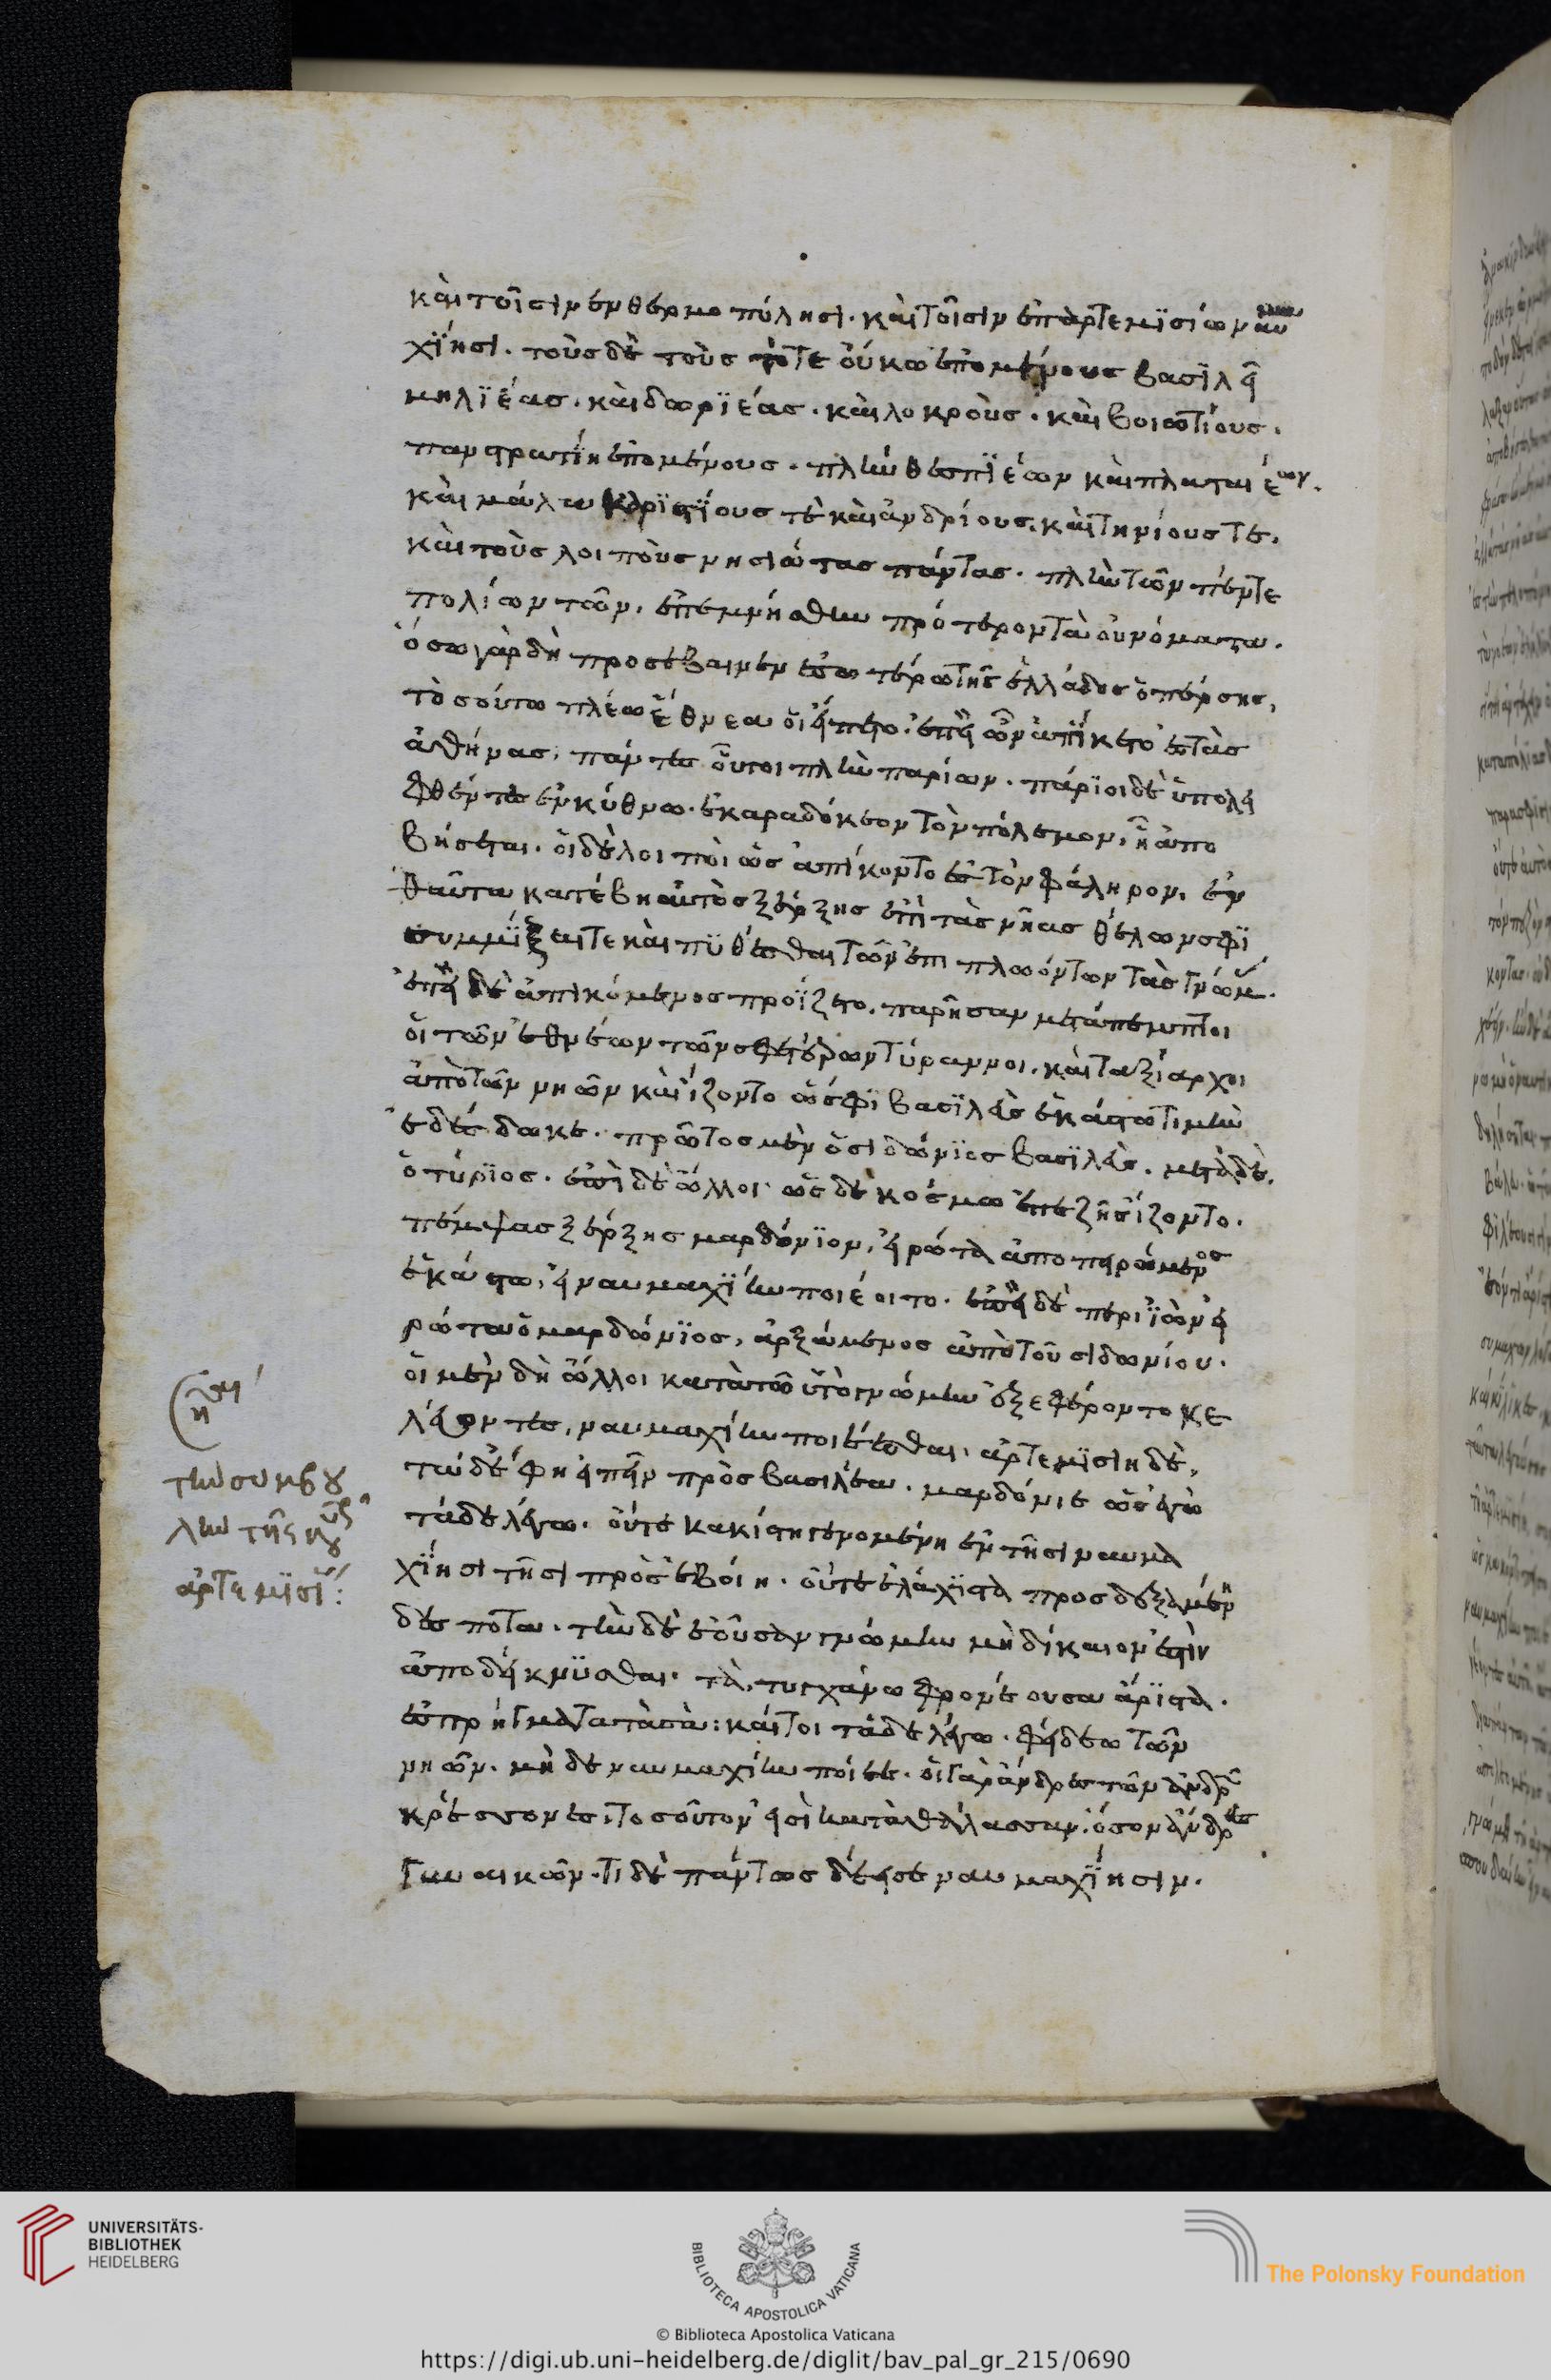 καὶ τοῖσιν ἐν θερμοπύλησι. καὶ τοῖσιν ἐπ ἀρτεμϊσίω ναυμα
χίησι. τοὺς δὲ τοὺς τότε οὔκω ἑπομένους βασϊλεῖ
μηλϊέας. καὶ δωρϊέας. καὶ λοκροὺς. καὶ βοιωτίους.
πανστρατίη ἑπομένους. πλὴν θεσπϊέων καὶ πλαταιέων.
καὶ μάλα καρϊστίους τὲ καὶ ἀνδρίους. καὶ τηνίους τε.
καὶ τοὺς λοιποὺς νησιώτας πάντας. πλὴν τῶν πέντε
πολίων τῶν, ἐπεμνήσθην πρότερον τὰ οὐνόματα.
ὅσω γὰρ δὴ προσέβαινεν ἐσωτέρω τῆς ἑλλάδος ὁ πέρσης,
τοσούτω πλέω ἔθνεα οἱ εἵπετο. ἐπεὶ ὦν ἀπίκετο ἐς τὰς
ἀθήνας, πάντες οὗτοι πλὴν παρίων. πάρϊοι δὲ ὑπολει
φθέντες ἐν κύθνω. ἐκαραδόκεον τὸν πόλεμον, ἧ ἀπο
βήσεται. οἱ δὲ λοιποὶ ὡς ἀπίκοντο ἐς τὸν φάληρον, ἐν
θαῦτα κατέβη αὐτὸς ξέρξης ἐπὶ τὰς νῆας θέλων σφϊ
συμμῖξαι τε καὶ πϋθέσθαι τῶν ἐπιπλωόντων τὰς γνώμ.
ἐπεὶ δὲ ἀπικόμενος προΐζετο. παρῆσαν μετάπεμπτοι
οἱ τῶν ἐθνέων τῶν σφετέρων τύραννοι. καὶ ταξίαρχοι
ἀπὸ τῶν νηῶν καὶ ἵζοντο ὥς σφϊ βασϊλεὺς ἑκάστω τιμὴν
ἐδεδώκε. πρῶτος μὲν ὁ σιδώνϊος βασϊλεὺς. μετὰ δὲ,
ὁ τύρϊος. ἐπὶ δὲ ὧλλοι. ὡς δὲ κόσμω ἐπεξῆς ἵζοντο.
πέμψας ξέρξης μαρδόνϊον, εἰρώτα ἀποπειρώμενος
ἑκάστω, εἰ ναυμαχΐην ποιέοιτο. ἐπεὶ δὲ περιϊὼν εἰ
ρώτα ὁ μαρδώνϊος, ἀρξάμενος ἀπὸ τοῦ σιδωνίου.
οἱ μὲν δὴ ὧλλοι κατὰ τὠυτὸ γνώμην ἐξεφέροντο κε
λεύοντες, ναυμαχίην ποιέεσθαι. ἀρτεμϊσίη δὲ,
τάδε ἔφη εἰπεῖν πρὸς βασιλέα. μαρδόνιε ὡς ἐγὼ
τάδε λέγω. οὔτε κακίστη γενομένη ἐν τῆσι ναυμα
χΐησι τῆσι πρὸς εὐβοίη. οὔτε ἐλάχϊστα προσδεξαμένη
δέσποτα. τὴν δὲ ἐοῦσαν γνώμην μὴ δίκαιον ἐστὶν
ἀποδείκνϋσθαι. τὰ, τυγχάνω φρονέουσα ἄρϊστα.
ἐς πρήγματα τὰ σὰ: καί τοι τάδε λέγω. φείδεω τῶν
νηῶν. μὴ δὲ ναυμαχίην ποίεε. οἱ γὰρ ἄνδρες τῶν ἀνδρ
κρέσσονες. τοσοῦτον εἰσὶ κατὰ θάλασσαν. ὅσον ἄνδρες
γυναικῶν. τί δὲ πάντως δέει σε ναυμαχΐησιν.
τὴν συμβου
λὴν τῆς
ἀρτεμϊσί:
UNIVERSITÄTS-
BIBLIOTHEK
HEIDELBERG
BIBLIOTECA APOSTOLICA VATICANA
The Polonsky Foundation
© Biblioteca Apostolica Vaticana
https://digi.ub.uni-heidelberg.de/diglit/bav_pal_gr_215/0690